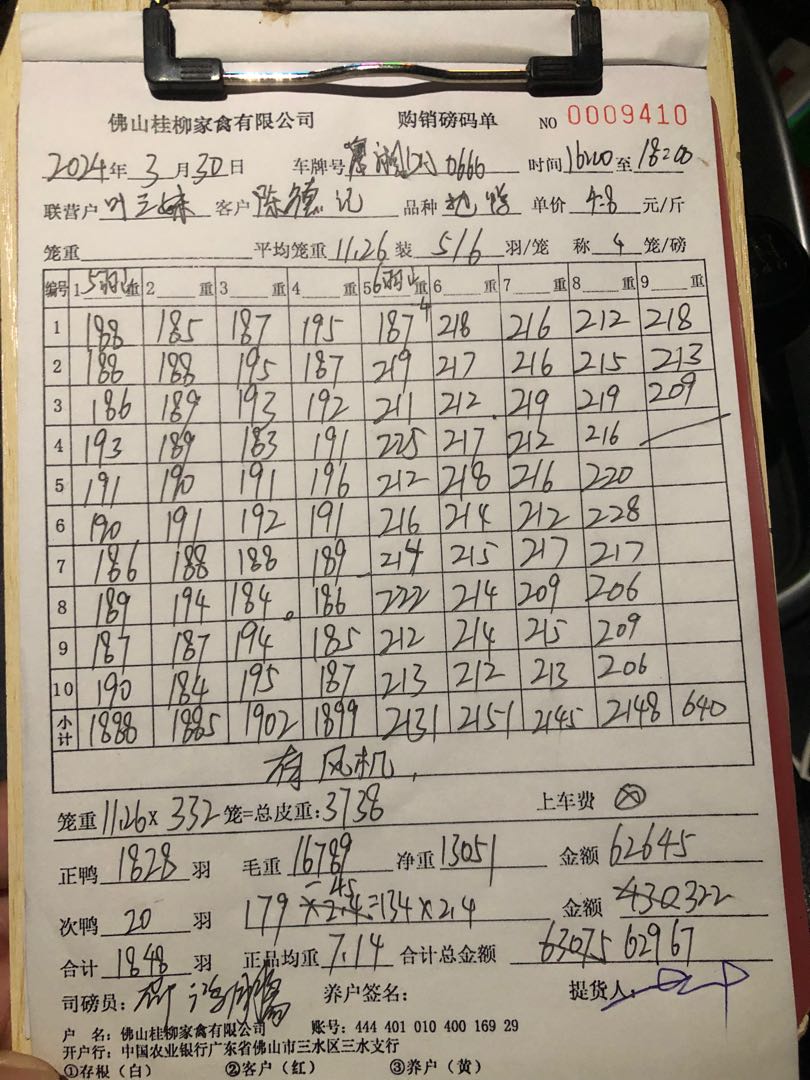 佛山桂柳家禽有限公司 购销磅码单 NO 0009410
2024年 3月30日 车牌号 0666 时间16:00至18:00
联营户 叶三妹 客户 陈德记 品种 单价 4.8 元/斤
笼重 平均笼重 11.26 装 5/6 羽/笼 称 4 笼/磅
编号 1 5羽 重 2 重 3 重 4 重 5 6羽 重 6 重 7 重 8 重 9 重
1 188 185 187 195 187 4 218 216 212 218
2 188 188 195 187 219 217 216 215 213
3 186 189 193 192 211 212 219 219 209
4 193 189 183 191 225 217 212 216
5 191 190 191 196 212 218 216 220
6 190 191 192 191 216 214 212 228
7 186 188 188 189 214 215 217 217
8 189 194 184 186 222 214 209 206
9 187 187 194 185 212 214 215 209
10 190 184 195 187 213 212 213 206
小计 1888 1885 1902 1899 2131 2151 2145 2148 640
有风机
笼重 11.26 × 332 笼=总皮重: 3738 上车费 ⊗
正鸭 1828 羽 毛重 16789 净重 13051 金额 62645
次鸭 20 羽 179 -45 ×2.4 =134×2.4 金额 430 322
合计 1848 羽 正品均重 7.14 合计总金额 63075 62967
司磅员: 养户签名: 提货人:
户 名: 佛山桂柳家禽有限公司 账号: 444 401 010 400 169 29
开户行: 中国农业银行广东省佛山市三水区三水支行
①存根(白) ②客户(红) ③养户(黄)